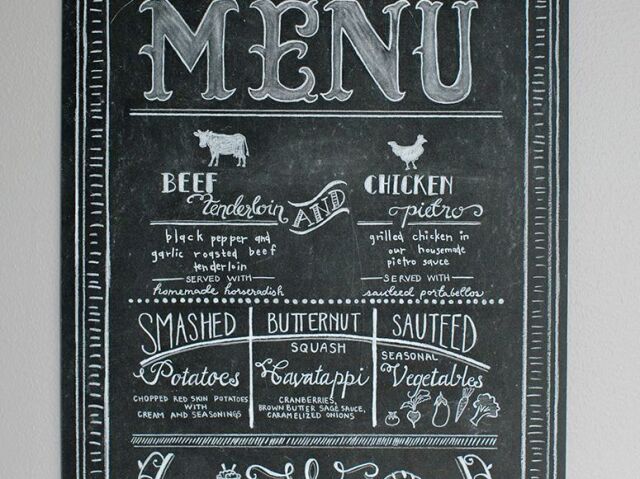 MENU
BEEF
Tenderloin
black pepper and
garlic roasted beef
tenderloin
SERVED WITH
homemade horseradish
AND
CHICKEN
pietro
grilled chicken in
our housemade
pietro sauce
SERVED WITH
sauteed portabellos
SMASHED
Potatoes
CHOPPED RED SKIN POTATOES
WITH
CREAM AND SEASONINGS
BUTTERNUT
SQUASH
Cavatappi
CRANBERRIES,
BROWN BUTTER SAGE SAUCE,
CARAMELIZED ONIONS
SAUTEED
SEASONAL
Vegetables